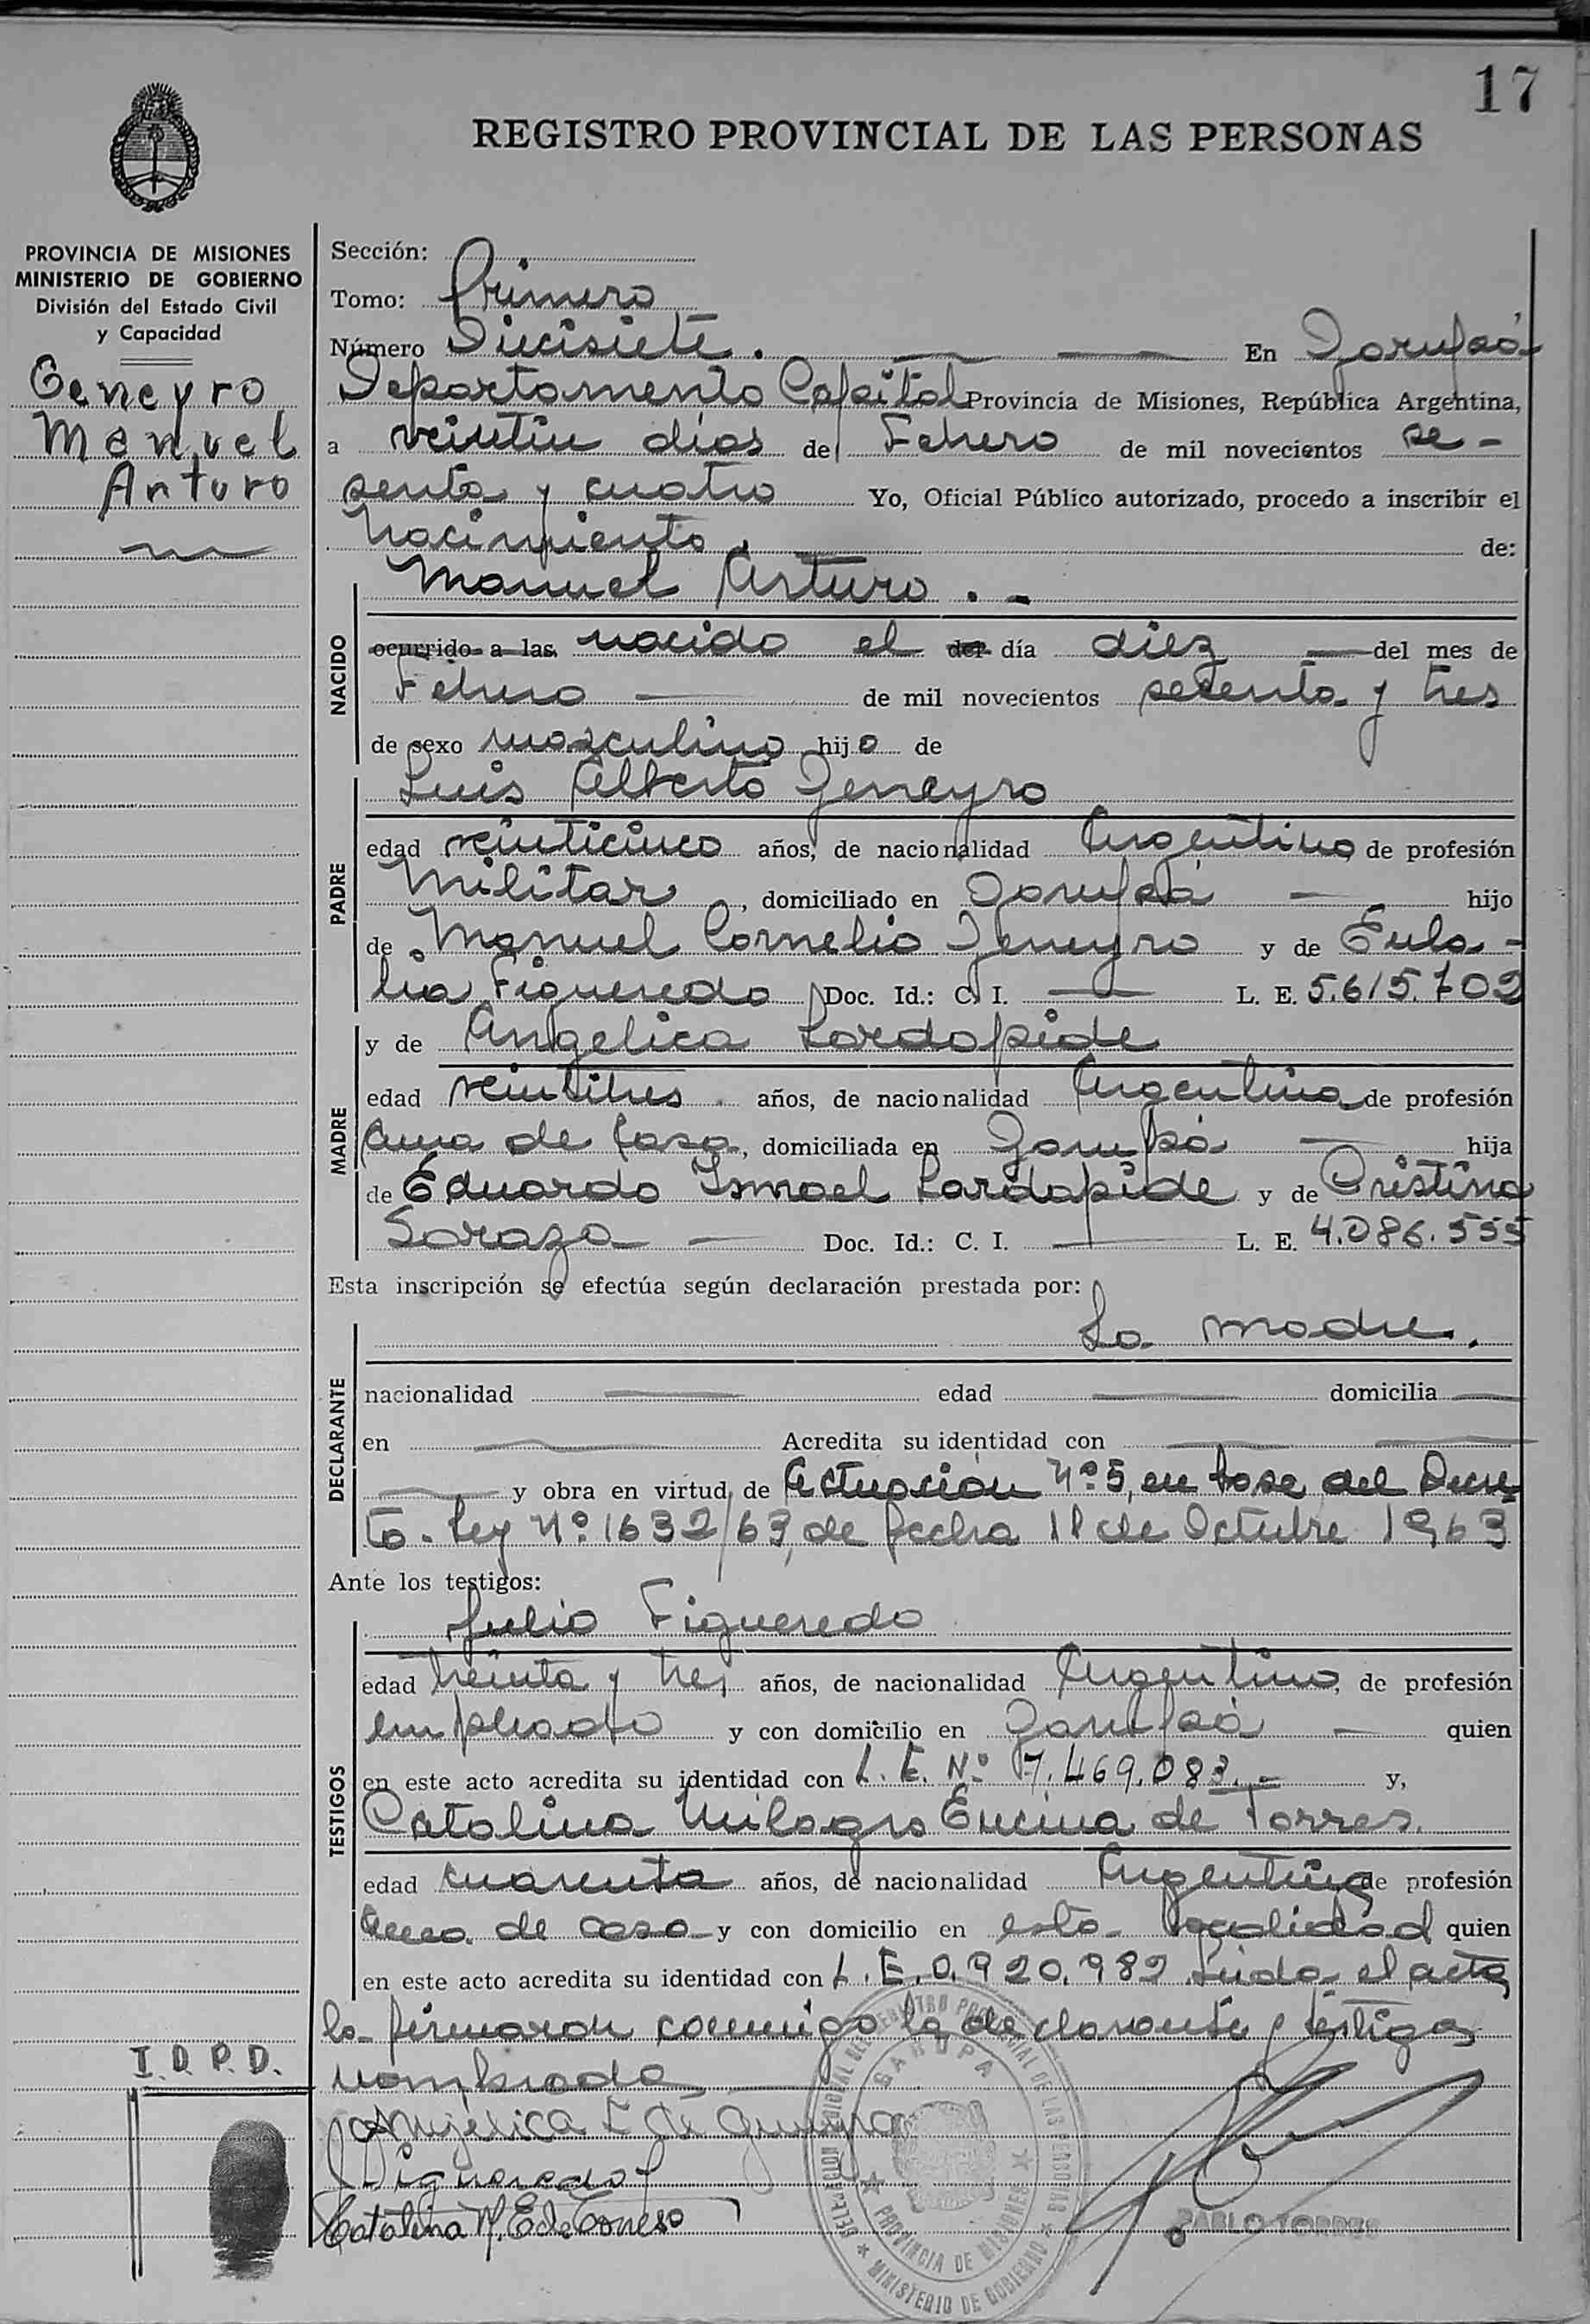 17
REGISTRO PROVINCIAL DE LAS PERSONAS
PROVINCIA DE MISIONES
MINISTERIO DE GOBIERNO
División del Estado Civil
y Capacidad
Geneyro
Manuel
Arturo
Sección:
Tomo: Primero
Número Diecisiete. En Garupá
Departamento Capital Provincia de Misiones, República Argentina,
a veintiun días del Febrero de mil novecientos se-
senta y cuatro Yo, Oficial Público autorizado, procedo a inscribir el
Nacimiento de:
Manuel Arturo . -
NACIDO
ocurrido a las nacido el del día diez del mes de
Febrero de mil novecientos sesenta y tres
de sexo masculino hijo de
Luis Alberto Geneyro
PADRE
edad veinticinco años, de nacionalidad Argentino de profesión
Militar, domiciliado en Garupá hijo
de Manuel Cornelio Geneyro y de Eula-
lia Figueredo Doc. Id.: C. I. L. E. 5.615.702
y de Angelica Lardapide
MADRE
edad veintitres años, de nacionalidad Argentina de profesión
Ama de Casa, domiciliada en Garupá hija
de Eduardo Ismael Lardapide y de Cristina
Soraza Doc. Id.: C. I. L. E. 4.086.555
Esta inscripción se efectúa según declaración prestada por:
La madre.
DECLARANTE
nacionalidad edad domicilia
en Acredita su identidad con
y obra en virtud de Actuación Nº 5, en base del Decre
to-Ley Nº 1632/63, de fecha 11 de Octubre 1963
Ante los testigos:
Julio Figueredo
TESTIGOS
edad treinta y tres años, de nacionalidad Argentino, de profesión
empleado y con domicilio en Garupá quien
en este acto acredita su identidad con L. E. Nº 7.469.083.- y,
Catalina Milagro Encina de Torres.
edad cuarenta años, de nacionalidad Argentina de profesión
Ama de casa y con domicilio en esta localidad quien
en este acto acredita su identidad con L. E. 0.920.982 Leida el acta
la firmaron conmigo la declarante y testigos
nombrados
I. D. P. D.
Angélica L de Geneyro
Figueredo J
Catalina M. E de Torres
GARUPA
PROVINCIA DE MISIONES
MINISTERIO DE GOBIERNO
PABLO TORRES